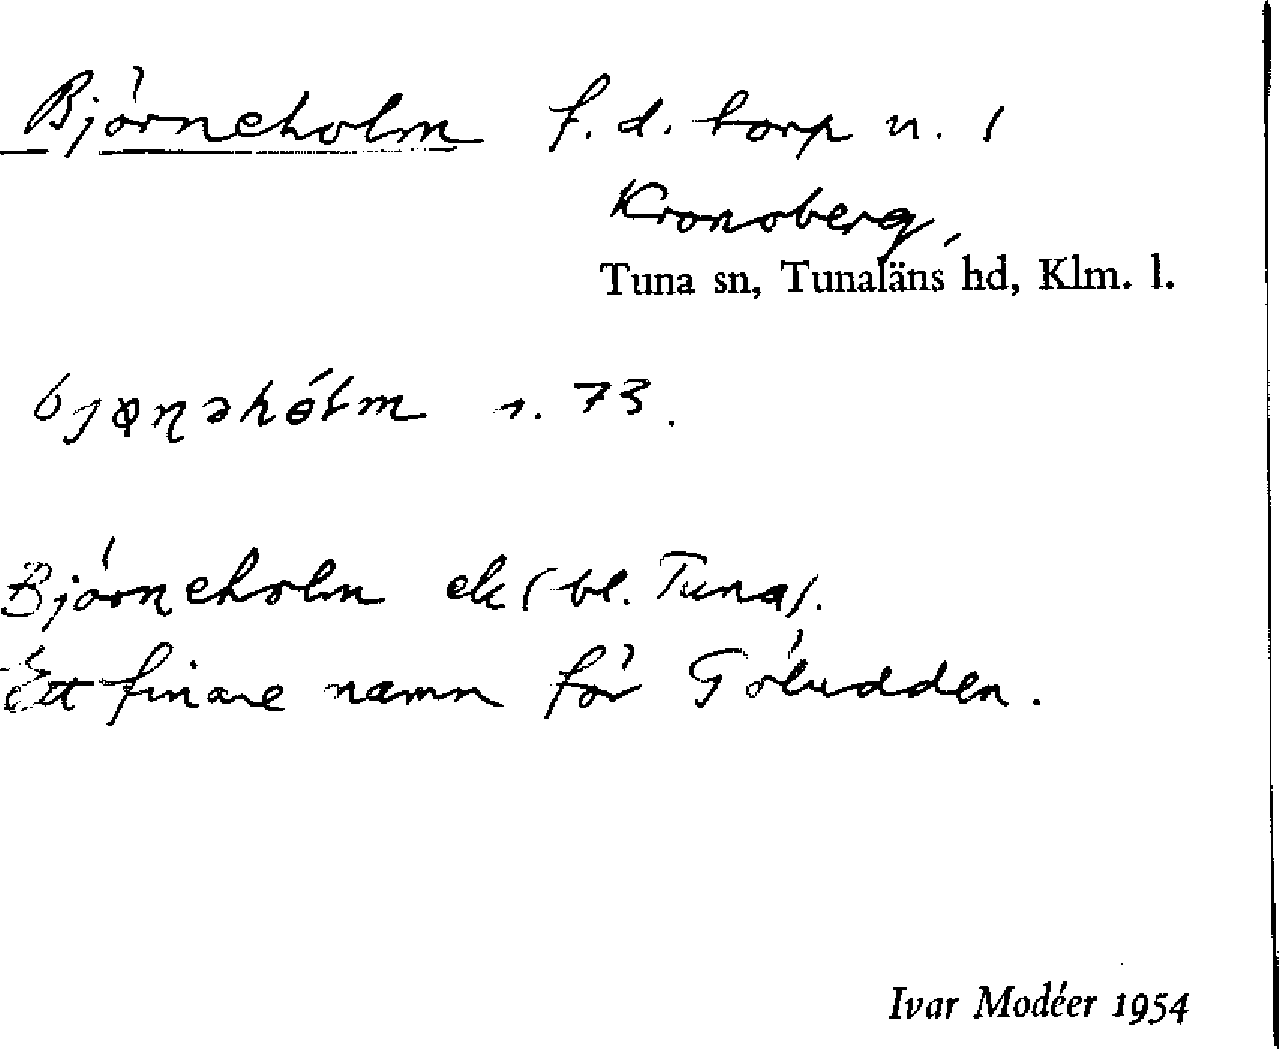 Björneholm f. d. torp u. 1
Kronoberg,
Tuna sn, Tunaläns hd, Klm. l.
s. 73.
Björneholm ek (bl. Tuna).
Ett finare namn för Göludden.
Ivar Modéer 1954